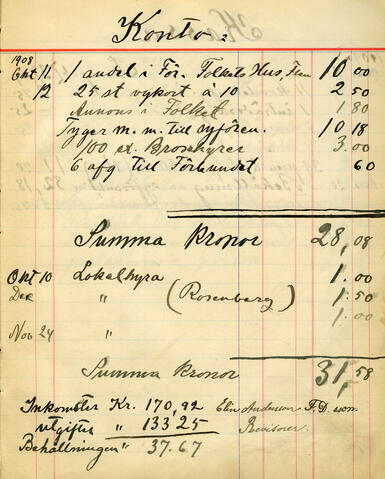 Konto.
1908
Okt 11 1 andel i För. Folkets Hus, Flen 10 00
12 25 st vykort à 10 2 50
Annons i Folket 1 80
Tyger m. m. till syfören. 10 18
100 ex. Broschyrer 3.00
6 afg till Förbundet 60
Summa kronor 28,08
Okt 10 Lokalhyra 1.00
Dec " (Rosenberg) 1.50
Nov 24 " 1.00
Summa kronor 31,58
Inkomster Kr. 170,92 Elin Andersson F.D. som
utgifter " 133 25 Revisorer.
Behållningen " 37.67